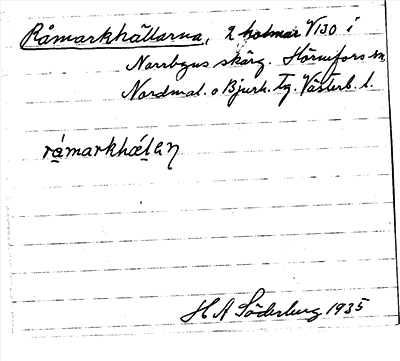 Råmarkhällarna, 2 holmar V130 i
Norrbyns skärg. Hörnefors sn,
Nordmal. o Bjurh. tg. Västerb. l.
råmarkhælan
H A Söderberg 1935